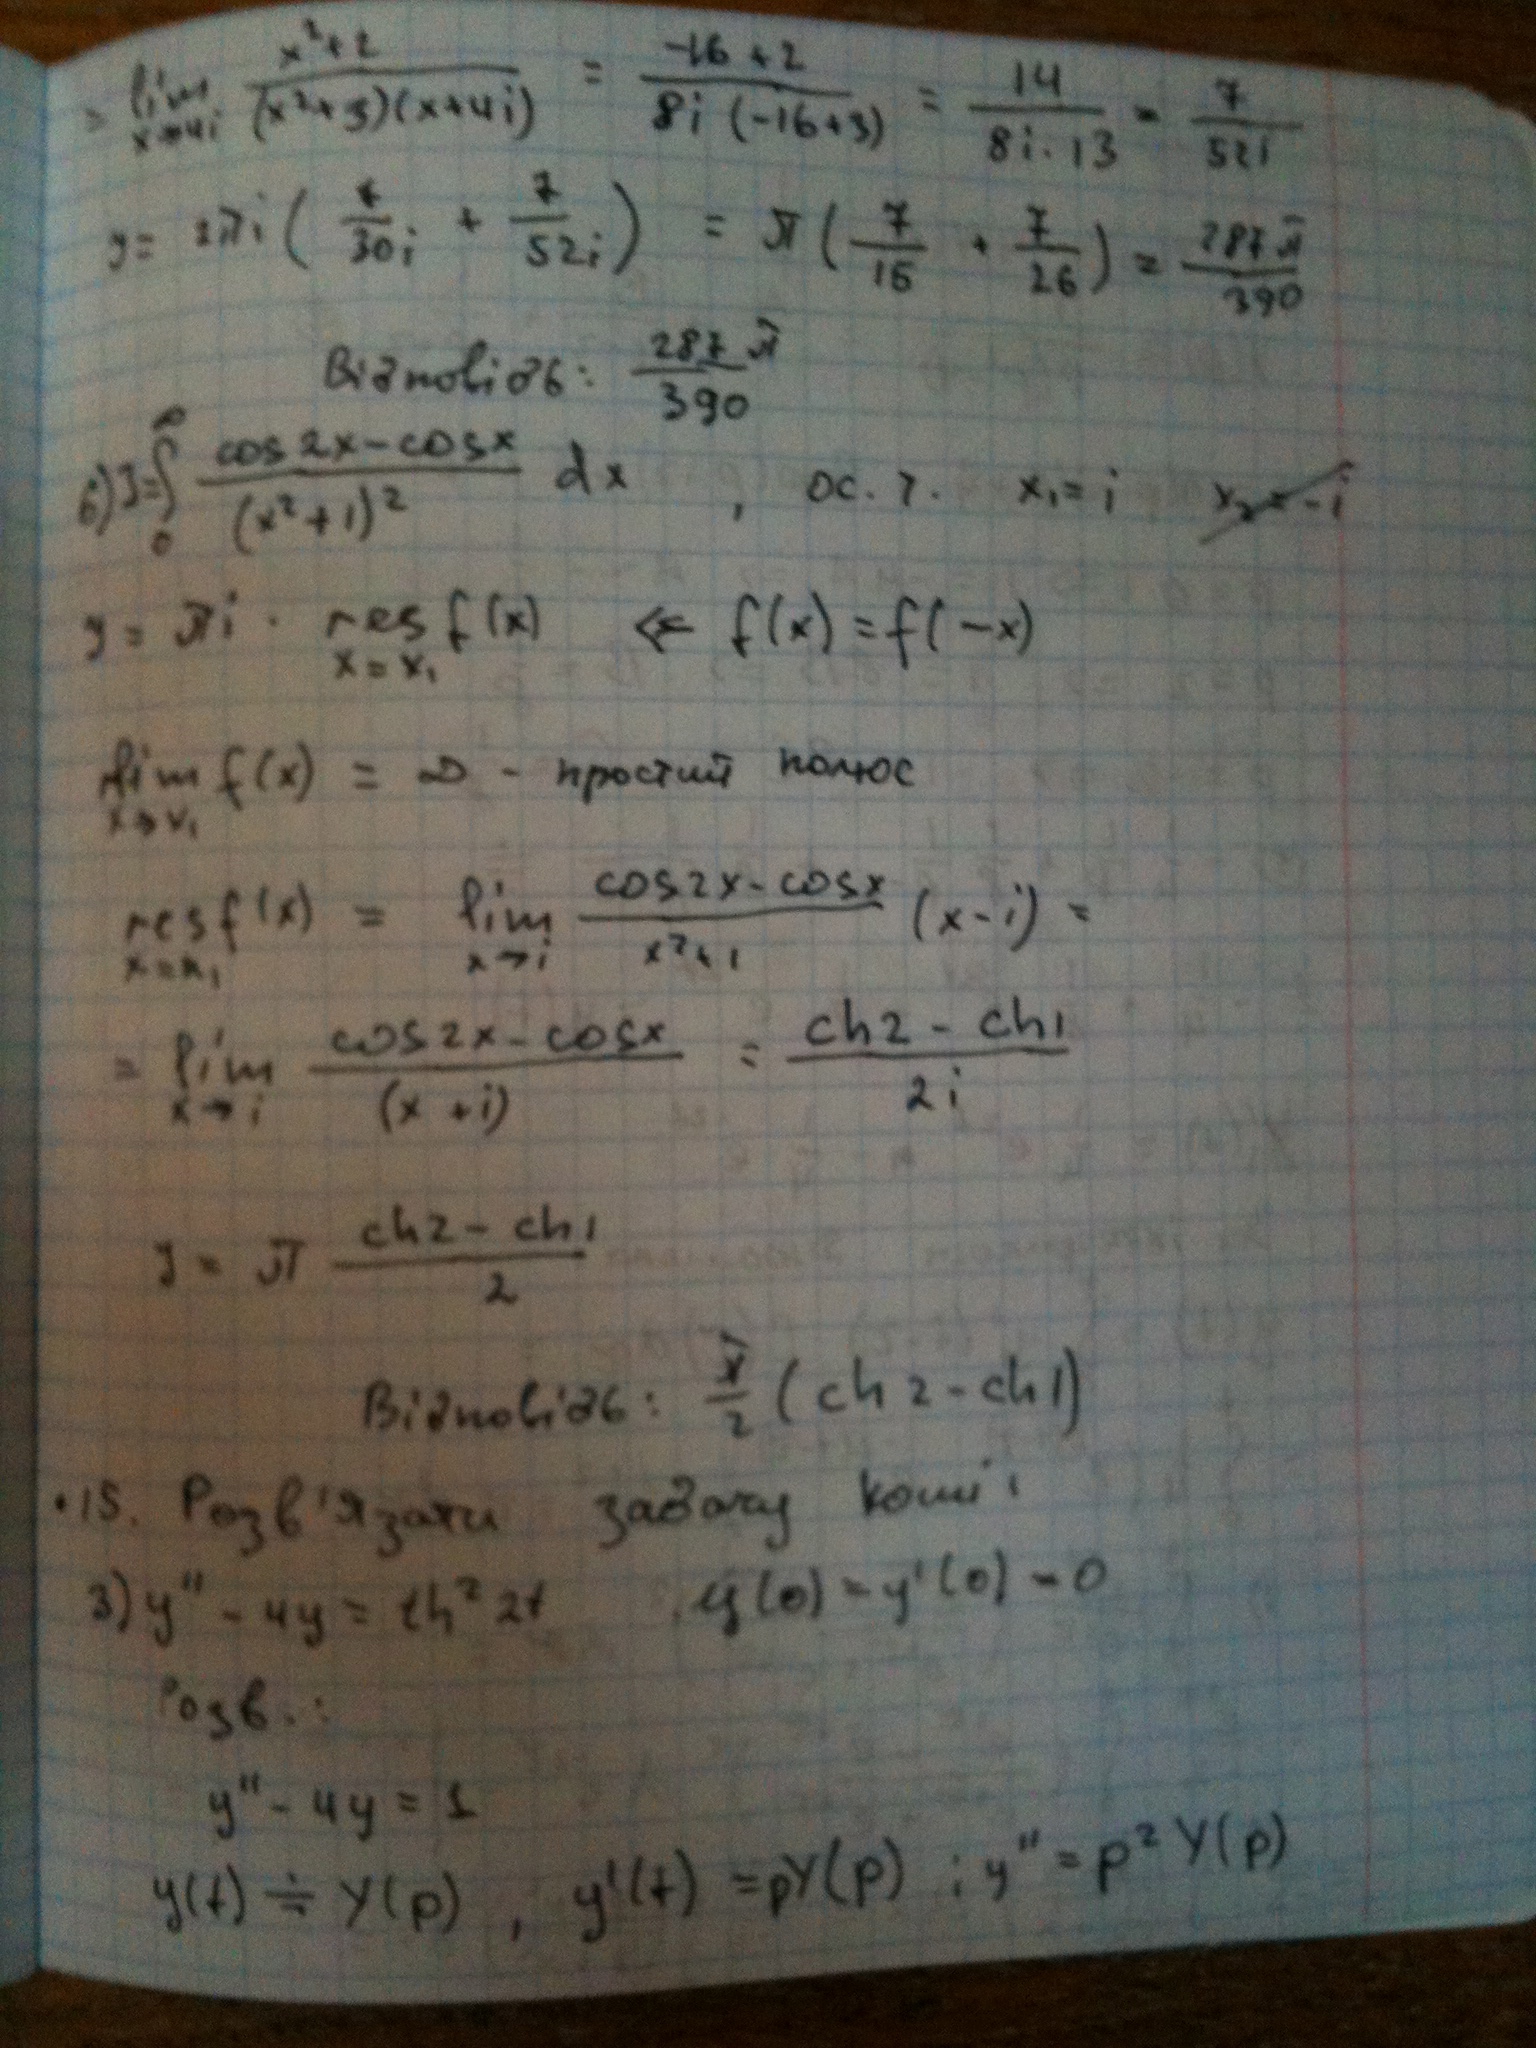 = lim x→4i (x²+2)/((x²+3)(x+4i)) = (-16+2)/(8i(-16+3)) = 14/(8i·13) = 7/52i
y = 2πi (7/30i + 7/52i) = π (7/15 + 7/26) = 287π/390
Відповідь: 287π/390
б) J = ∫₀^∞ (cos2x - cosx)/(x²+1)² dx , ос. т. x₁ = i x₂ = -i
y = πi · res x=x₁ f(x) ⇐ f(x) = f(-x)
lim x→x₁ f(x) = ∞ - простий полюс
res x=x₁ f(x) = lim x→i (cos2x - cosx)/(x²+1) (x-i) =
= lim x→i (cos2x - cosx)/(x+i) = (ch2 - ch1)/2i
y = π (ch2 - ch1)/2
Відповідь: π/2 (ch2 - ch1)
•15. Розв'язати задачу Коші
3) y'' - 4y = th² 2t y(0) = y'(0) = 0
Розв.:
y'' - 4y = 1
y(t) ≑ Y(p) , y'(t) = pY(p) ; y'' = p² Y(p)